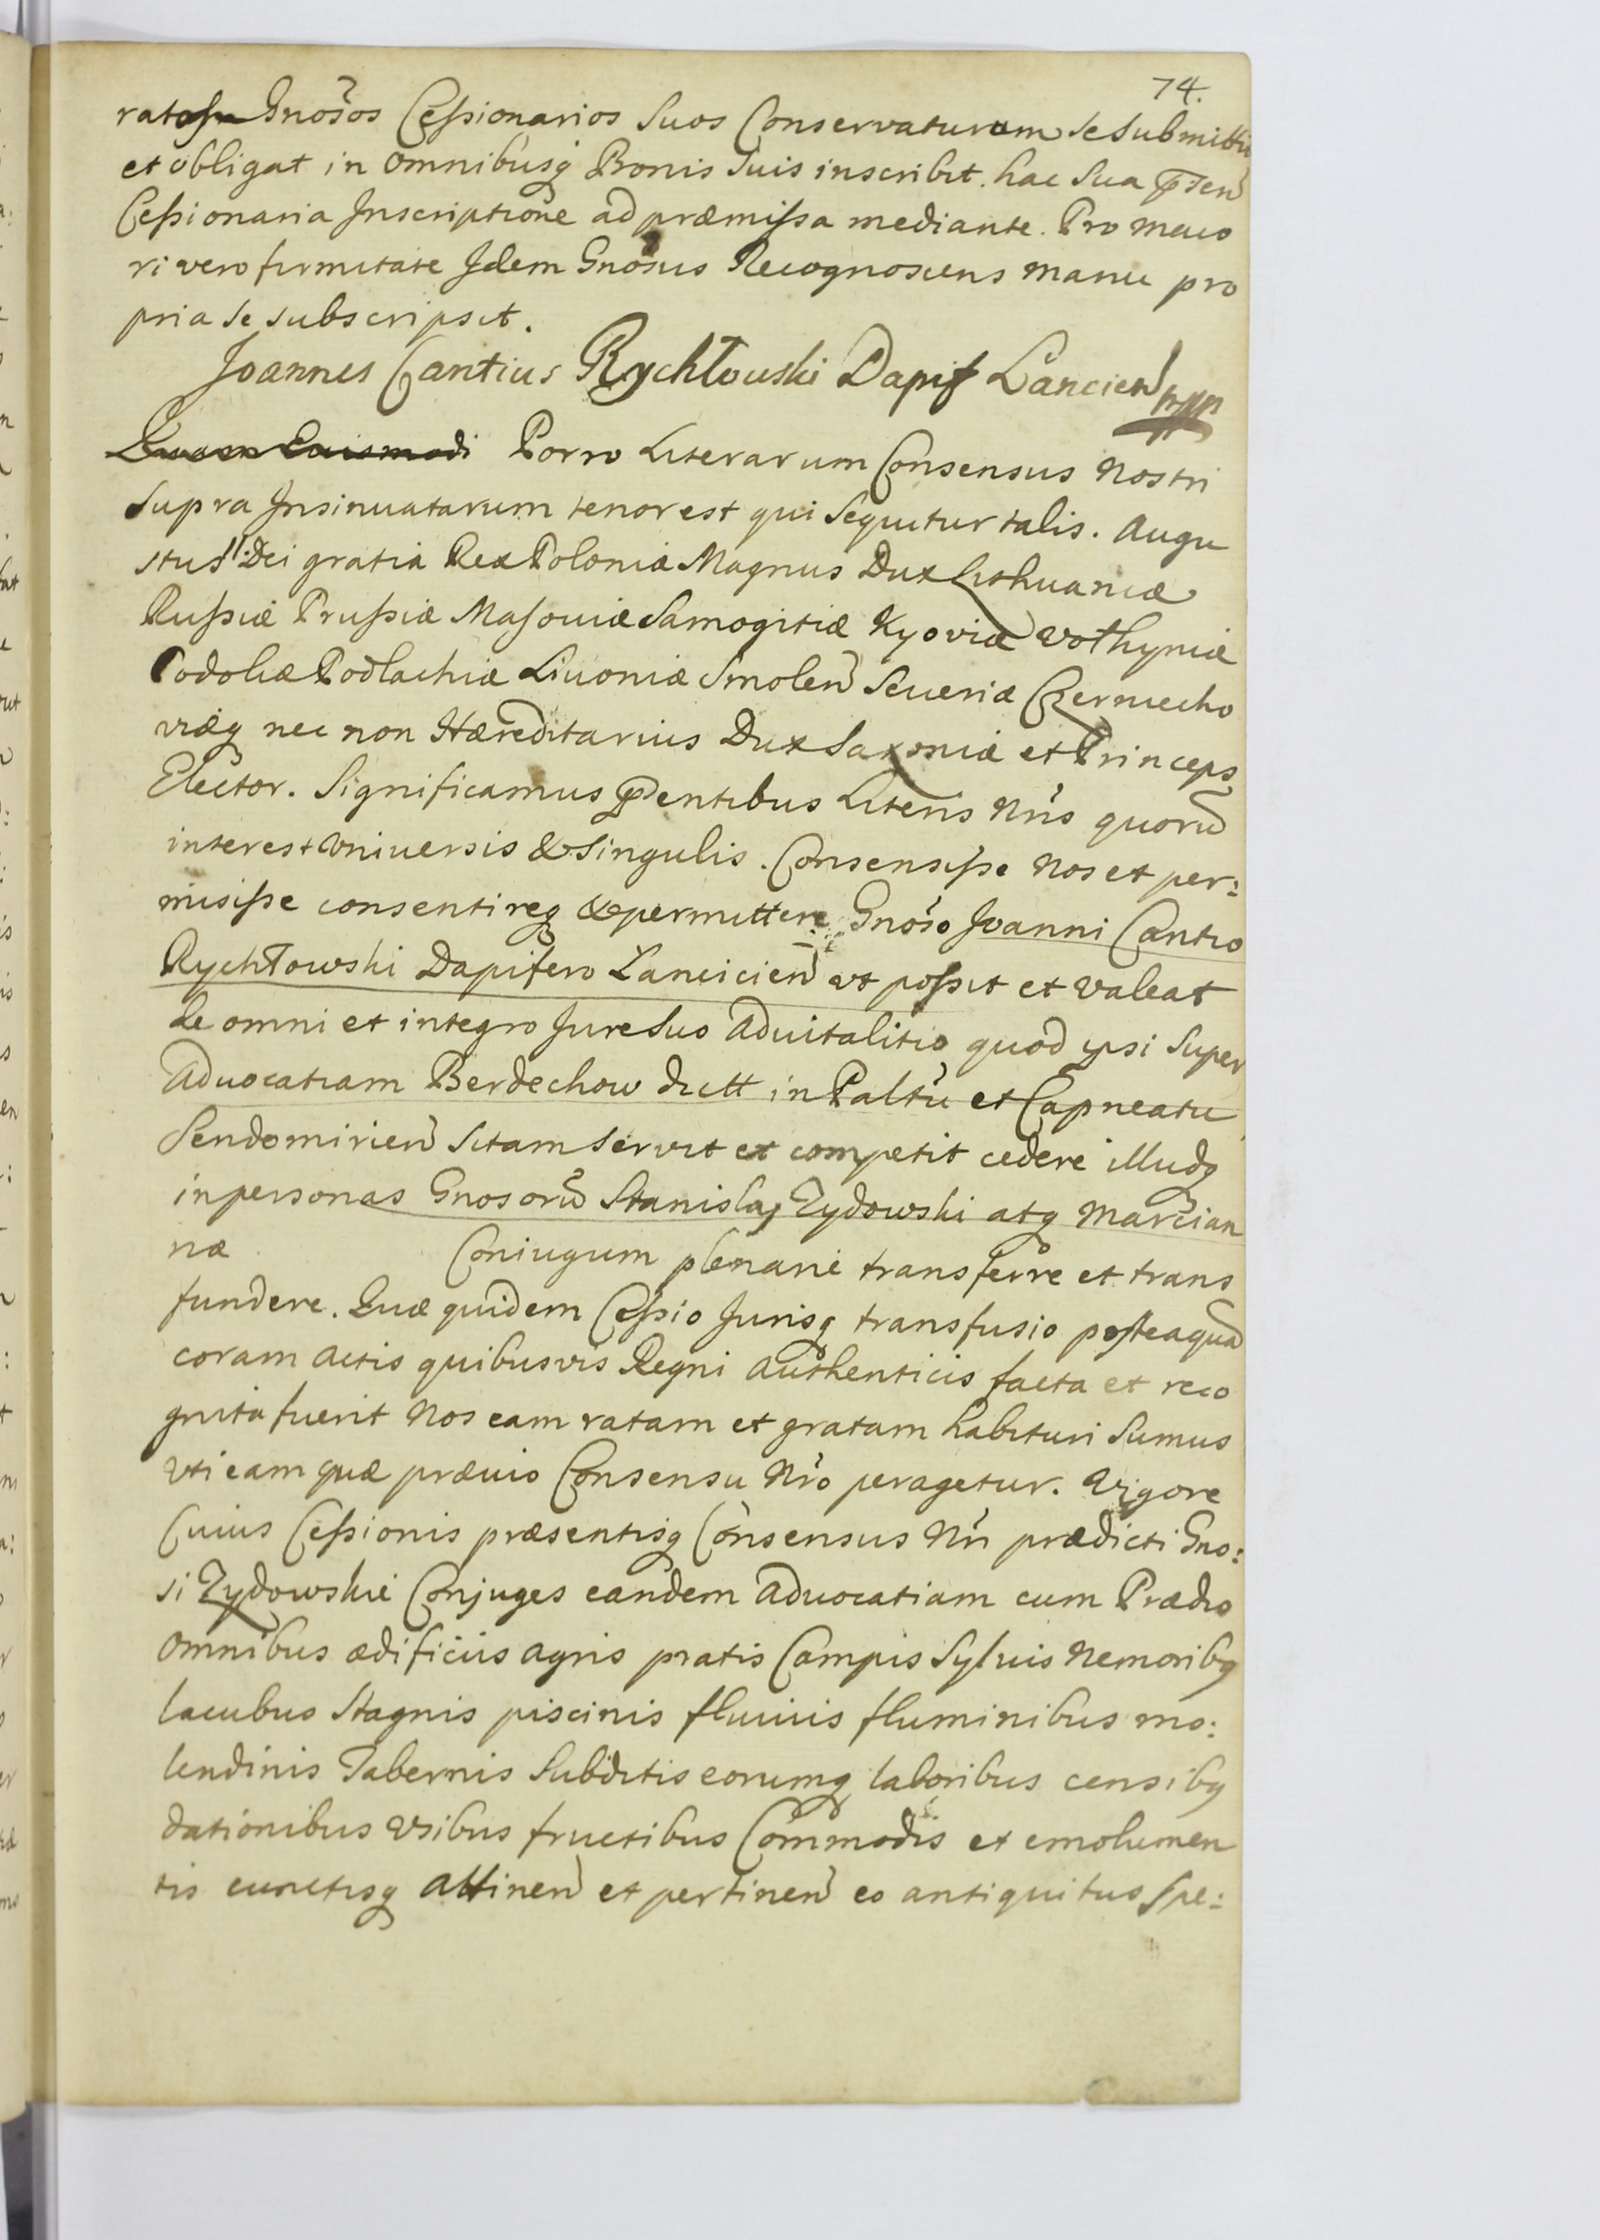 74.
ratosq Gnosos Cessionarios Suos Conservaturum se submittit
et obligat in omnibusq Bonis Suis inscribit. hac Sua pñten
Cessionaria Inscriptione ad præmissa mediante. Pro maio
ri vero firmitate Idem Gnosus Recognoscens manu pro
pria se subscripsit.
Joannes Cantius Rychłowski Dapif Lancicien mpp
Porro Literarum Consensus Nostri
supra Insinuatarum tenor est qui sequitur talis. Augu
stus II. Dei gratia Rex Poloniæ Magnus Dux Lithuaniæ
Russiæ Prussiæ Masouiæ Samogitiæ Kyoviæ Vołhyniæ
Podoliæ Podlachiæ Liuoniæ Smolen Seueriæ Czerniecho
viæq nec non Hæreditarius Dux Saxoniæ et Princeps
Elector. Significamus pñtentibus Literis Nris quorũ
interest Vniuersis & singulis. Consensisse Nos et per:
misisse consentireq & permittere Gnoso Joanni Cantio
Rychłowski Dapifero Lancicien vt possit et valeat
de omni et integro Jure Suo aduitalitio quod ipsi super
Aduocatiam Berdechow dictt in Paltu et Capneatu
Sendomirien sitam servit et competit cedere illudq
in personas Gnosorũ Stanislaj Zydowski atq Marcian
næ Coniugum plenarie transferre et trans
fundere. Quæ quidem Cessio Jurisq transfusio posteaquã
coram actis quibusvis Regni authenticis facta et reco
gnita fuerit Nos eam ratam et gratam habituri Sumus
vti eam quæ præuio Consensu Nro peragetur. Vigore
Cuius Cessionis præsentisq Consensus Nri prædicti Gno:
si Zydowskie Conjuges eandem Aduocatiam cum Prædio
omnibus ædificiis agris pratis Campis Syluis Nemoribq
lacubus Stagnis piscinis fluuiis fluminibus mo:
lendinis Tabernis Subditis eorumq laboribus censibq
dationibus Vsibus fructibus Commodis et emolumen
tis cunctisq attinen et pertinen eo antiquitus spe: